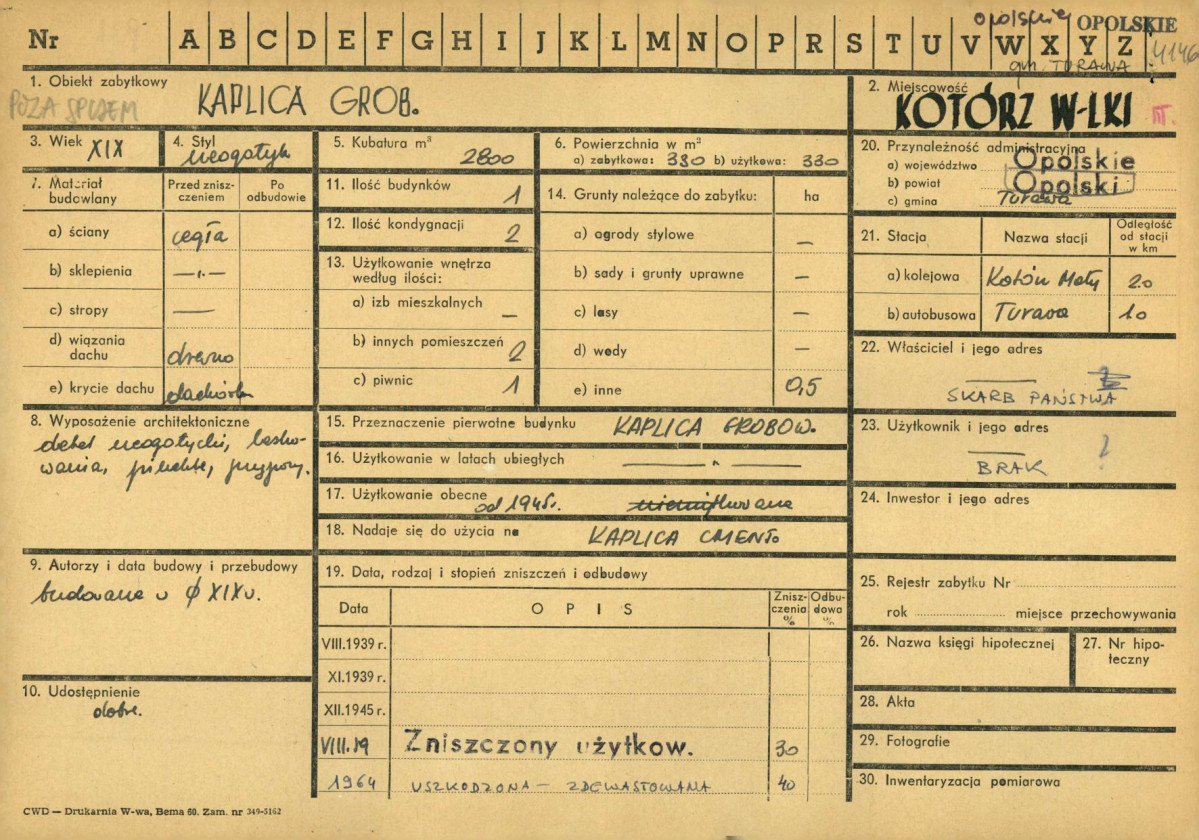 opolskiej OPOLSKIE
Nr A B C D E F G H I J K L M N O P R S T U V W X Y Z 4146
gm. TURAWA
1. Obiekt zabytkowy
POZA SPISEM
KAPLICA GROB.
2. Miejscowość
KOTÓRZ W-LKI III.
3. Wiek XIX
4. Styl neogotyk
5. Kubatura m³ 2800
6. Powierzchnia w m²
a) zabytkowa: 330 b) użytkowa: 330
20. Przynależność administracyjna
a) województwo Opolskie
b) powiat Opolski
c) gmina Turawa
7. Materiał budowlany
Przed zniszczeniem
Po odbudowie
a) ściany cegła
b) sklepienia —„—
c) stropy —
d) wiązania dachu drewno
e) krycie dachu dachówka
11. Ilość budynków 1
12. Ilość kondygnacji 2
13. Użytkowanie wnętrza według ilości:
a) izb mieszkalnych —
b) innych pomieszczeń 2
c) piwnic 1
14. Grunty należące do zabytku: ha
a) ogrody stylowe —
b) sady i grunty uprawne —
c) lasy —
d) wody —
e) inne 0,5
21. Stacja
Nazwa stacji
Odległość od stacji w km
a) kolejowa Kotórz Mały 2.0
b) autobusowa Turawa 1.0
22. Właściciel i jego adres
SKARB PAŃSTWA
23. Użytkownik i jego adres
BRAK ?
24. Inwestor i jego adres
8. Wyposażenie architektoniczne
detal neogotycki, lasko-
wania, pinakle, przypory.
15. Przeznaczenie pierwotne budynku KAPLICA GROBOW.
16. Użytkowanie w latach ubiegłych —„—
17. Użytkowanie obecne
od 1945r. nieużytkowana
18. Nadaje się do użycia na KAPLICA CMENT.
9. Autorzy i data budowy i przebudowy
budowana w XIXw.
10. Udostępnienie
dobre.
19. Data, rodzaj i stopień zniszczeń i odbudowy
Data
OPIS
Zniszczenia %
Odbudowa %
VIII.1939 r.
XI.1939 r.
XII.1945 r.
VIII.59 Zniszczony użytkow. 30
1964 USZKODZONA — ZDEWASTOWANA 40
25. Rejestr zabytku Nr
rok miejsce przechowywania
26. Nazwa księgi hipotecznej
27. Nr hipoteczny
28. Akta
29. Fotografie
30. Inwentaryzacja pomiarowa
CWD — Drukarnia W-wa, Bema 60. Zam. nr 349-5162